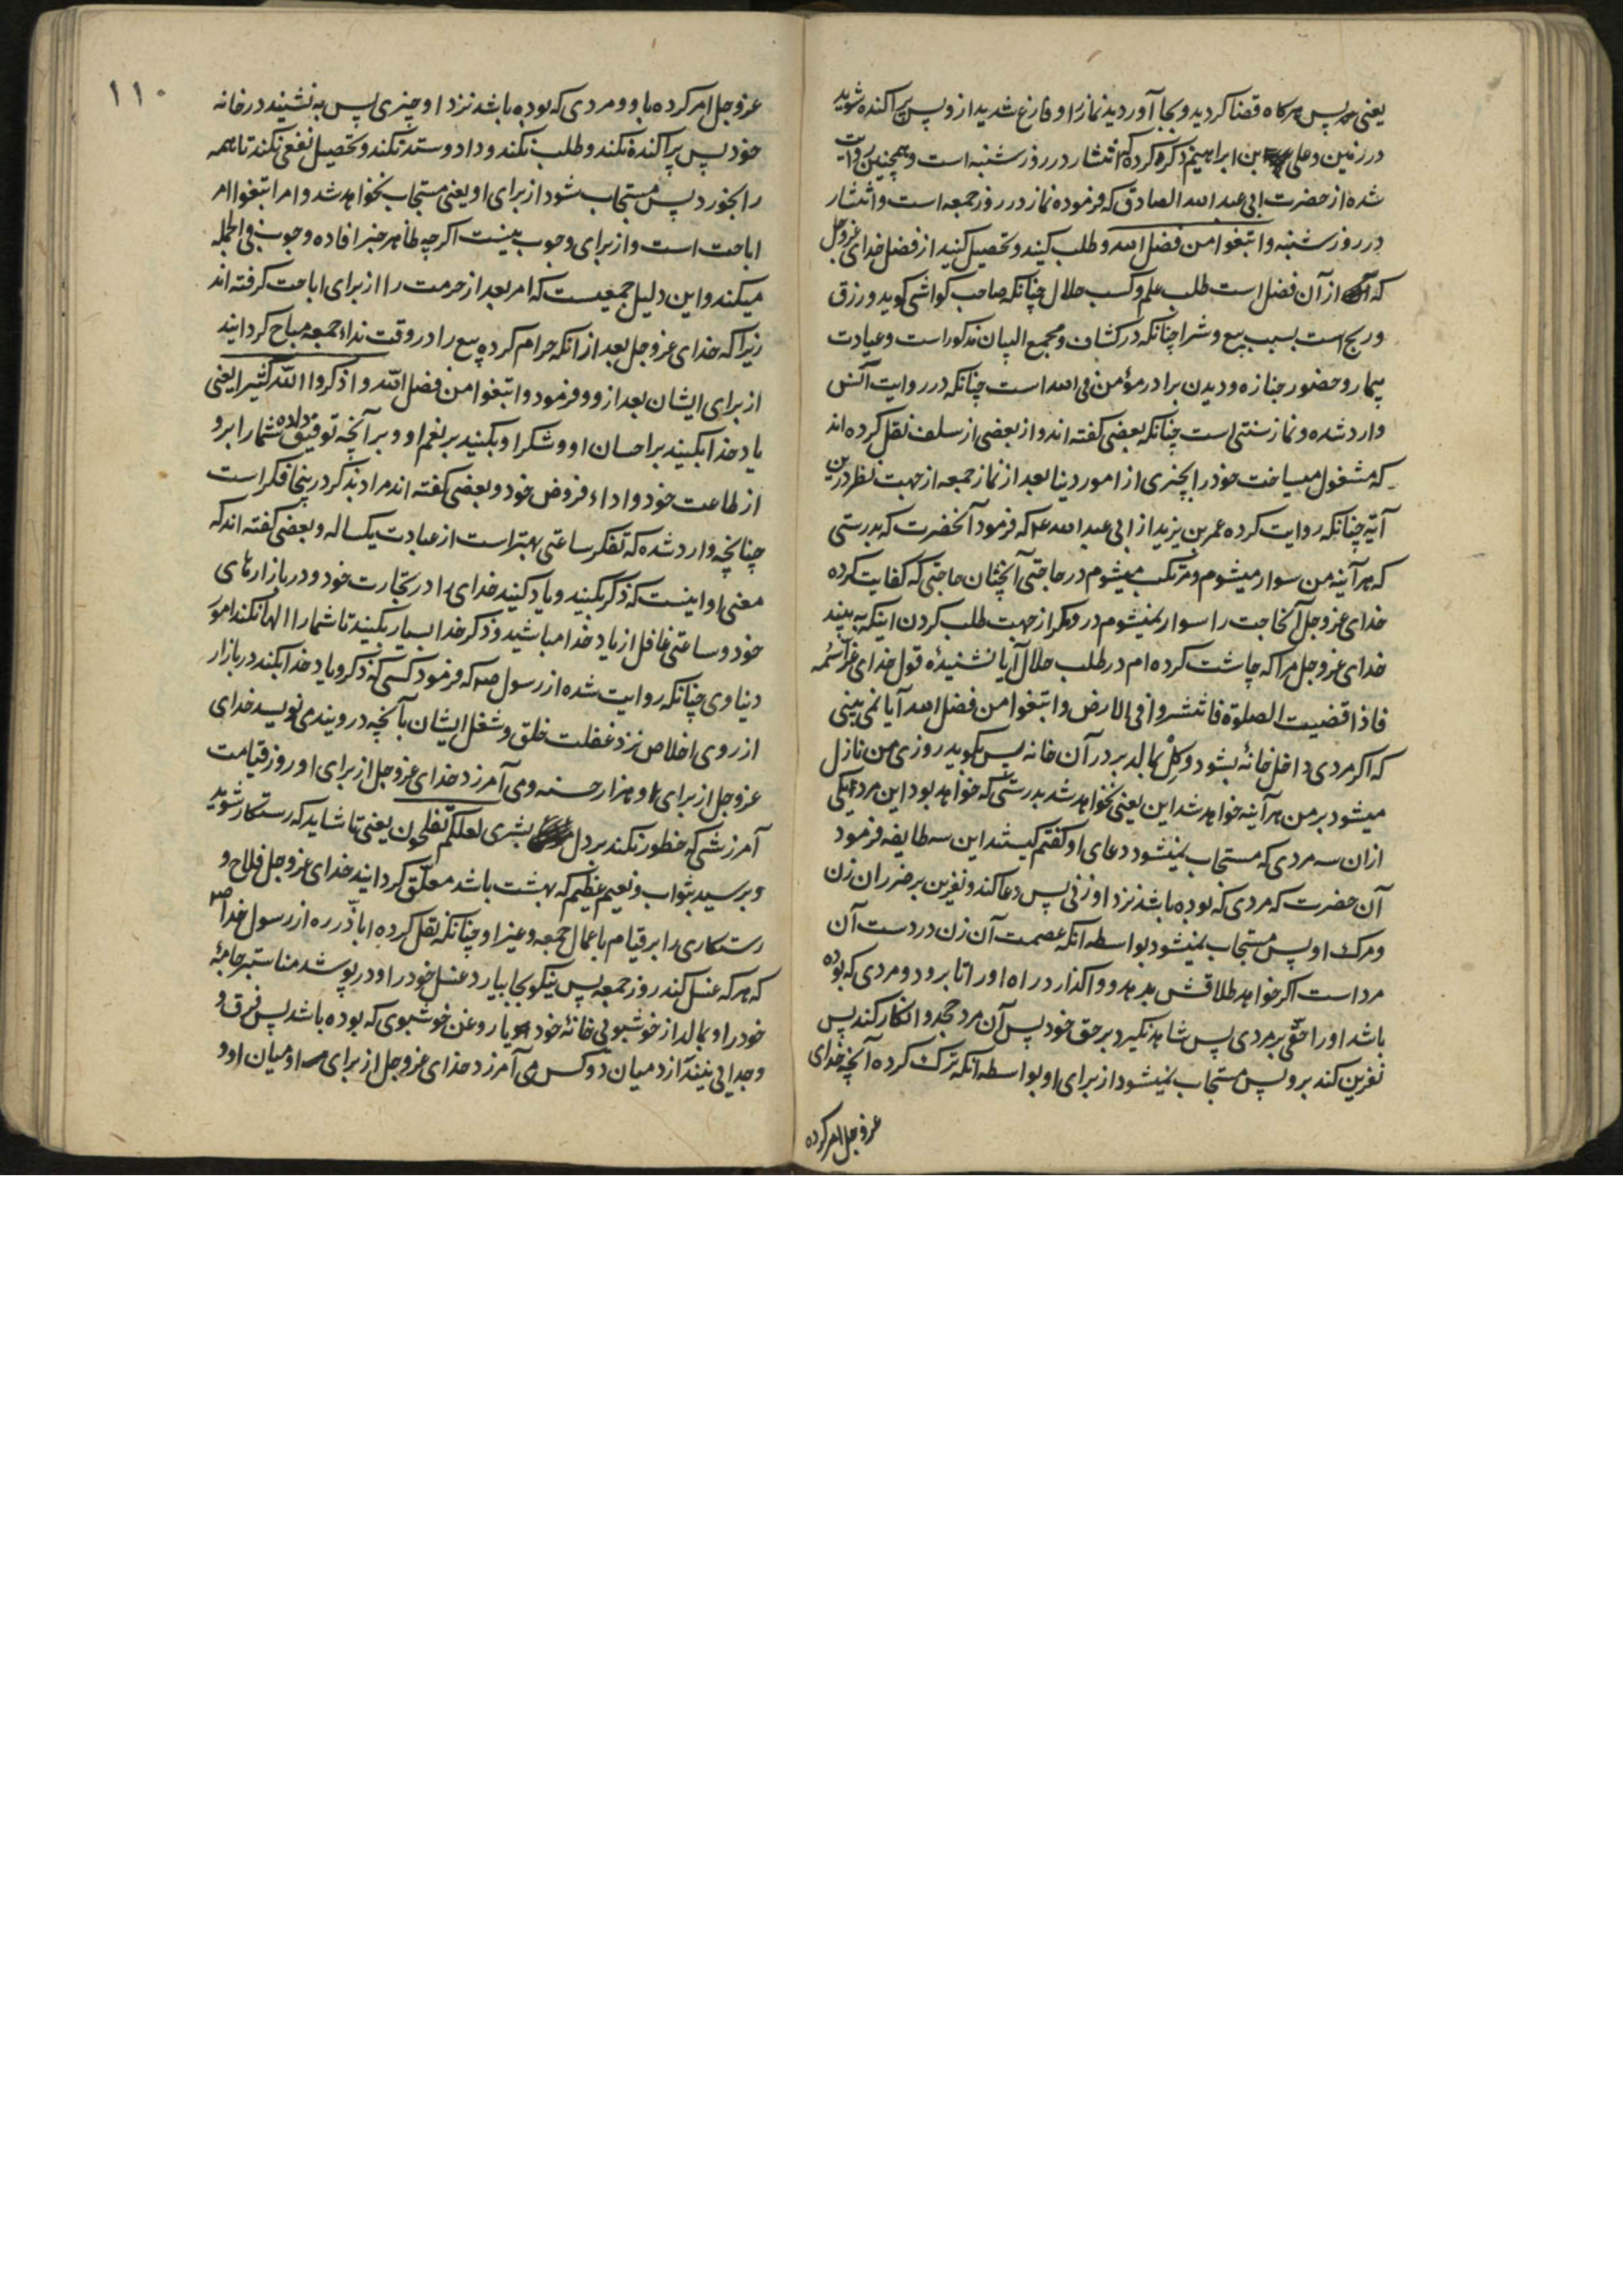 یعنی پس هرکاه قضا کردید و بجا آوردید نماز را و فارغ شدید ازو پس پراکنده شوید
در زمین و علی بن ابراهیم ذکر کرده که انتشار در روز شنبه است و همچنین روایت
شده از حضرت ابی عبد الله الصادق که فرموده نماز در روز جمعه است و انتشار
در روز شنبه وابتغوا من فضل الله و طلب کنید و تحصیل کنید از فضل خدای عزوجل
که از آن فضل است طلب علم و کسب حلال چنانکه صاحب کواشی کوید و رزق
و ربح است بسبب بیع و شرا چنانکه در کشاف و مجمع البیان مذکور است و عیادت
بیمار و حضور جنازه و دیدن برادر مؤمن فی الله است چنانکه در روایت انس
وارد شده و نماز سنتی است چنانکه بعضی کفته اند و از بعضی از سلف نقل کرده اند
که مشغول میساخت خود را بچیزی از امور دنیا بعد از نماز جمعه از جهت نظر درین
آیة چنانکه روایت کرده عمر بن یزید از ابی عبد الله ع که فرمود آنحضرت که بدرستی
که هرآینه من سوار میشوم و مرتکب میشوم در حاجتی آنچنان حاجتی که کفایت کرده
خدای عزوجل آنحاجت را سوار نمیشوم در مکر از جهت طلب کردن اینکه به بیند
خدای عزوجل مرا که چاشت کرده ام در طلب حلال آیا نشنیدهٔ قول خدای عز اسمه
فاذا قضیت الصلوة فانتشروا فی الارض وابتغوا من فضل الله آیا نمی بینی
که اکر مردی داخل خانهٔ بشود و کِل بمالد بر در آن خانه پس بکوید روزی من نازل
میشود بر من هرآینه خواهد شد این یعنی نخواهد شد بدرستی که خواهد بود این مرد یکی
ازان سه مردی که مستجاب نمیشود دعای او کفتم کیستند این سه طایفه فرمود
آن حضرت که مردی که بوده باشد نزد او زنی پس دعا کند و نفرین بر ضرر ان زن
و مرک او پس مستجاب نمیشود بواسطه انکه عصمت آن زن در دست آن
مرد است اکر خواهد طلاقش بدهد و واکذارد راه او را تا برود و مردی که بوده
باشد او را حقّی بر مردی پس شاهد نکیرد بر حق خود پس آن مرد جحد و انکار کند پس
نفرین کند برو پس مستجاب نمیشود از برای او بواسطه انکه ترک کرده آنچه خدای
عزوجل امر کرده
۱۱۰
عزوجل امر کرده باو و مردی که بوده باشد نزد او چیزی پس به نشیند در خانه
خود پس پراکنده نکند و طلب نکند و داد و ستد نکند و تحصیل نفعی نکند تا همه
را بخورد پس مستجاب شود از برای او یعنی مستجاب نخواهد شد و امر ابتغوا امر
اباحت است و از برای وجوب نیست اکرچه ظاهر خبر افاده وجوب فی الجمله
میکند و این دلیل جمعیست که امر بعد از حرمت را از برای اباحت کرفته اند
زیرا که خدای عزوجل بعد از انکه حرام کرده بیع را در وقت نداء جمعه مباح کردانید
از برای ایشان بعد ازو و فرمود وابتغوا من فضل الله واذکروا الله کثیرا یعنی
یاد خدا بکنید بر احسان او و شکر او بکنید بر نعم او و بر آنچه توفیق داده شما را برو
از طاعت خود و اداء فروض خود و بعضی کفته اند مراد بذکر درینجا فکر است
چنانچه وارد شده که تفکر ساعتی بهتر است از عبادت یکساله و بعضی کفته اند که
معنی او اینست که ذکر بکنید و یاد کنید خدای را در تجارت خود و در بازارهای
خود و ساعتی غافل از یاد خدا مباشید و ذکر خدا بسیار بکنید تا شما را الها نکند امور
دنیاوی چنانکه روایت شده از رسول ص که فرمود کسی که ذکر و یاد خدا بکند در بازار
از روی اخلاص نزد غفلت خلق و شغل ایشان بآنچه دروبند می نویسد خدای
عزوجل از برای او هزار حسنه و می آمرزد خدای عزوجل از برای او روز قیامت
آمرزشی که خطور نکند بر دل بشری لعلکم تفلحون یعنی تا شاید که رستکار شوید
و برسید بثواب و نعیم عظیم که بهشت باشد معلّق کردانید خدای عزوجل فلاح و
رستکاری را بر قیام باعمال جمعه و غیر او چنانکه نقل کرده اباذّر ره از رسول خدا ص
که هر که غسل کند روز جمعه پس نیکو بجا بیارد غسل خود را و در پوشد مناسبتر جامهٔ
خود را و بمالد از خوشبوئی خانهٔ خود یا روغن خوشبوی که بوده باشد پس فرق و
و جدایی نیندازد میان دو کس می آمرزد خدای عزوجل از برای او میان او و